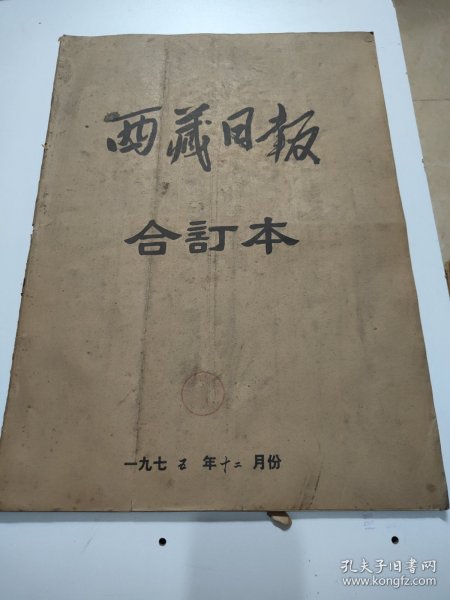 西藏日报
合訂本
一九七五年十二月份
孔夫子旧书网
www.kongfz.com